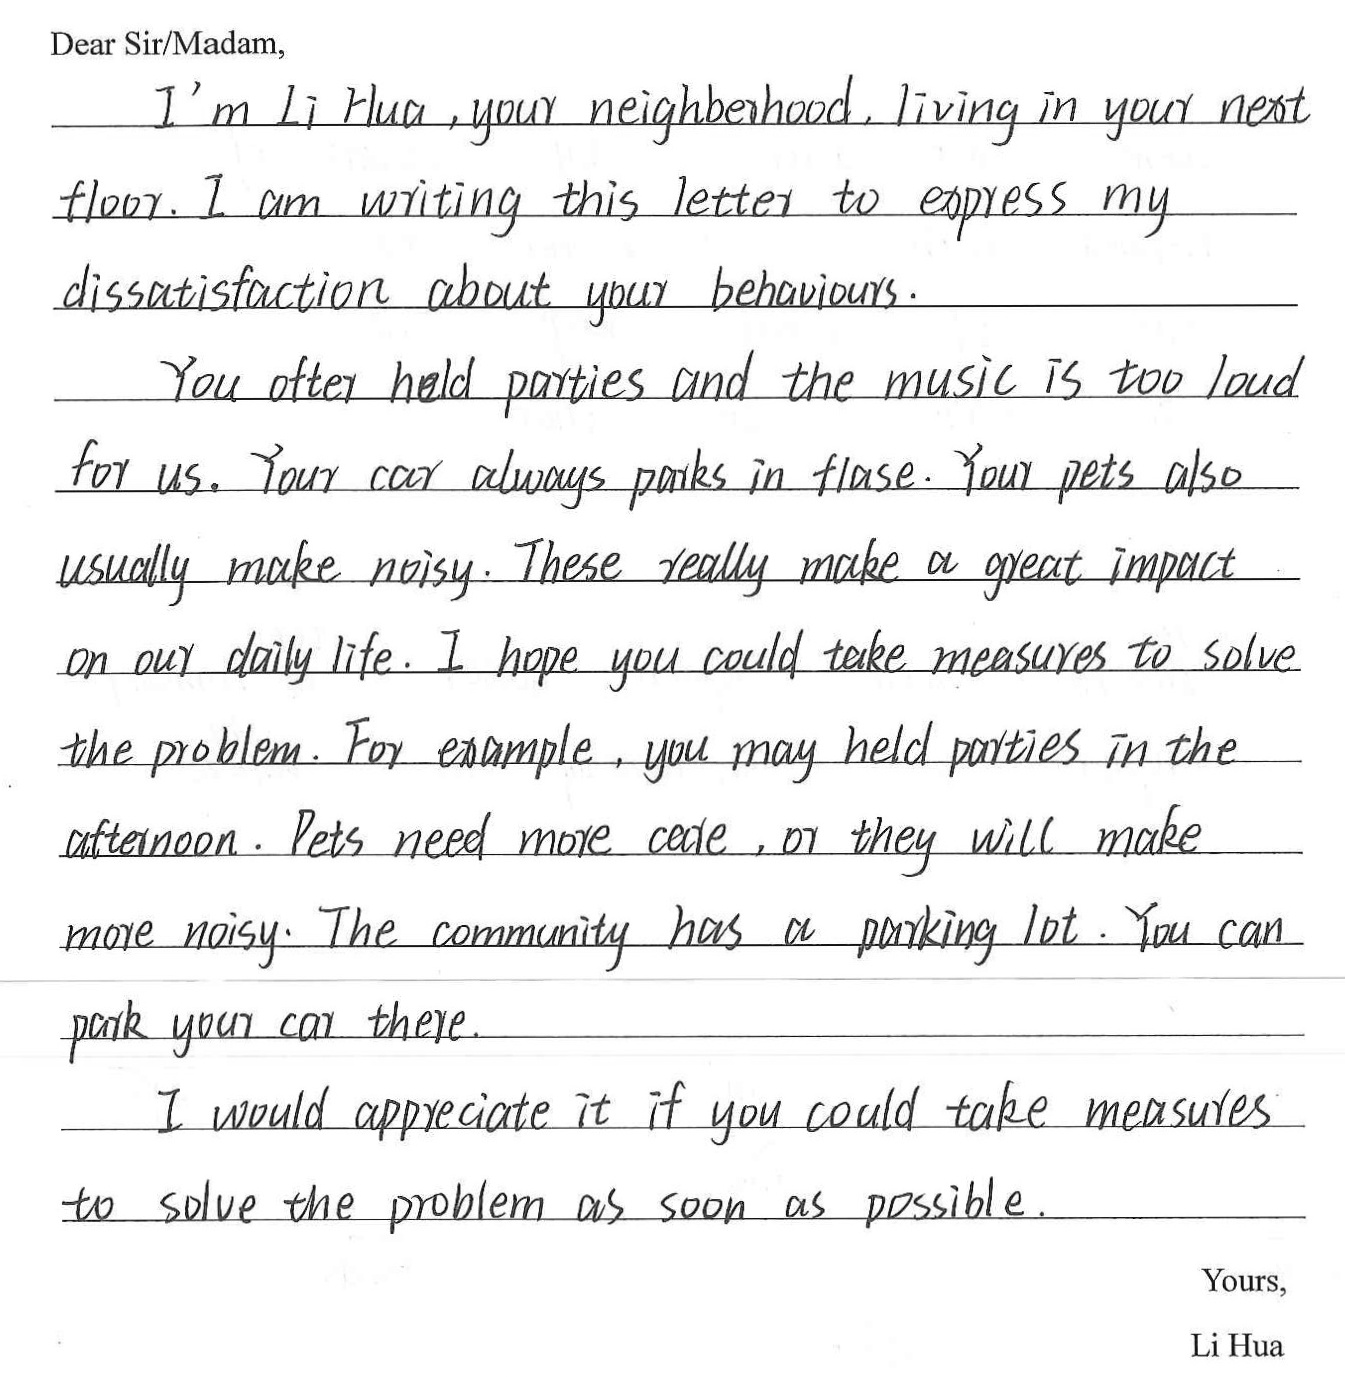 Dear Sir/Madam,
I'm Li Hua, your neighberhood, living in your next
floor. I am writing this letter to express my
dissatisfaction about your behaviours.
You ofter held parties and the music is too loud
for us. Your car always parks in flase. Your pets also
usually make noisy. These really make a great impact
on our daily life. I hope you could take measures to solve
the problem. For example, you may held parties in the
afternoon. Pets need more , or they will make
more noisy. The community has a parking lot. You can
park your car there.
I would appreciate it if you could take measures
to solve the problem as soon as possible.
Yours,
Li Hua